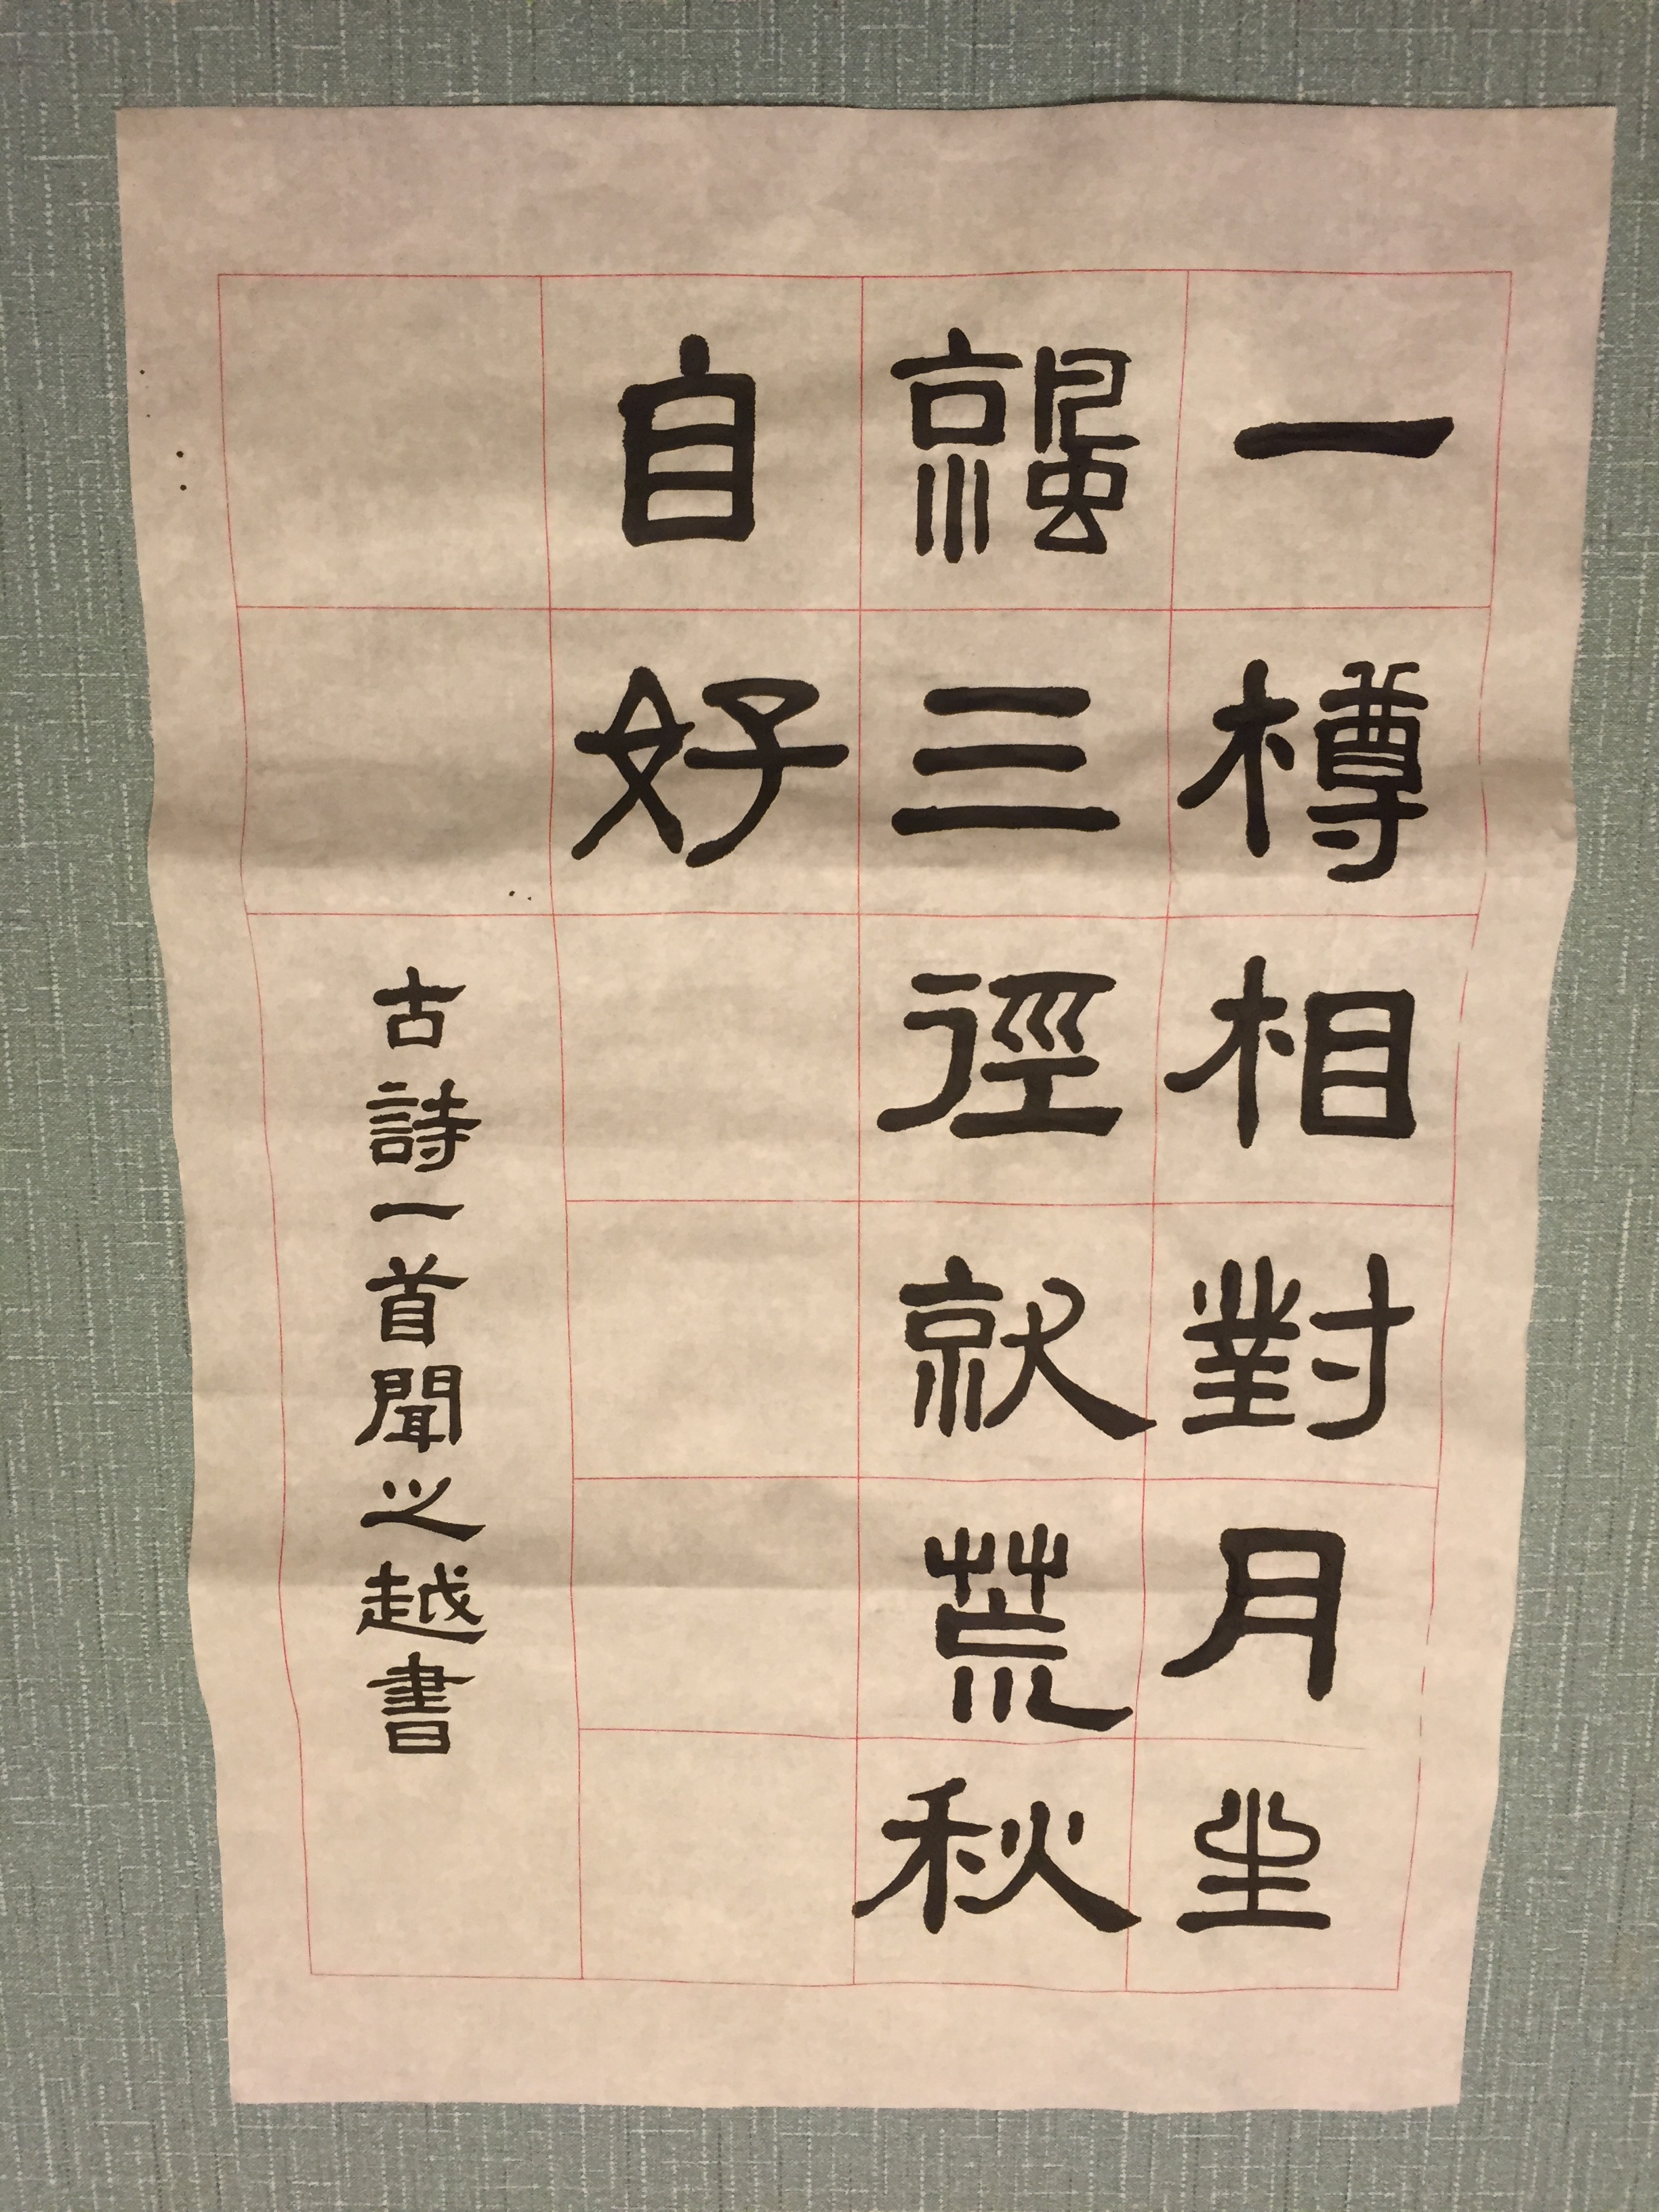 一樽相對月坐
三徑就荒秋
自好
古詩一首聞之越書